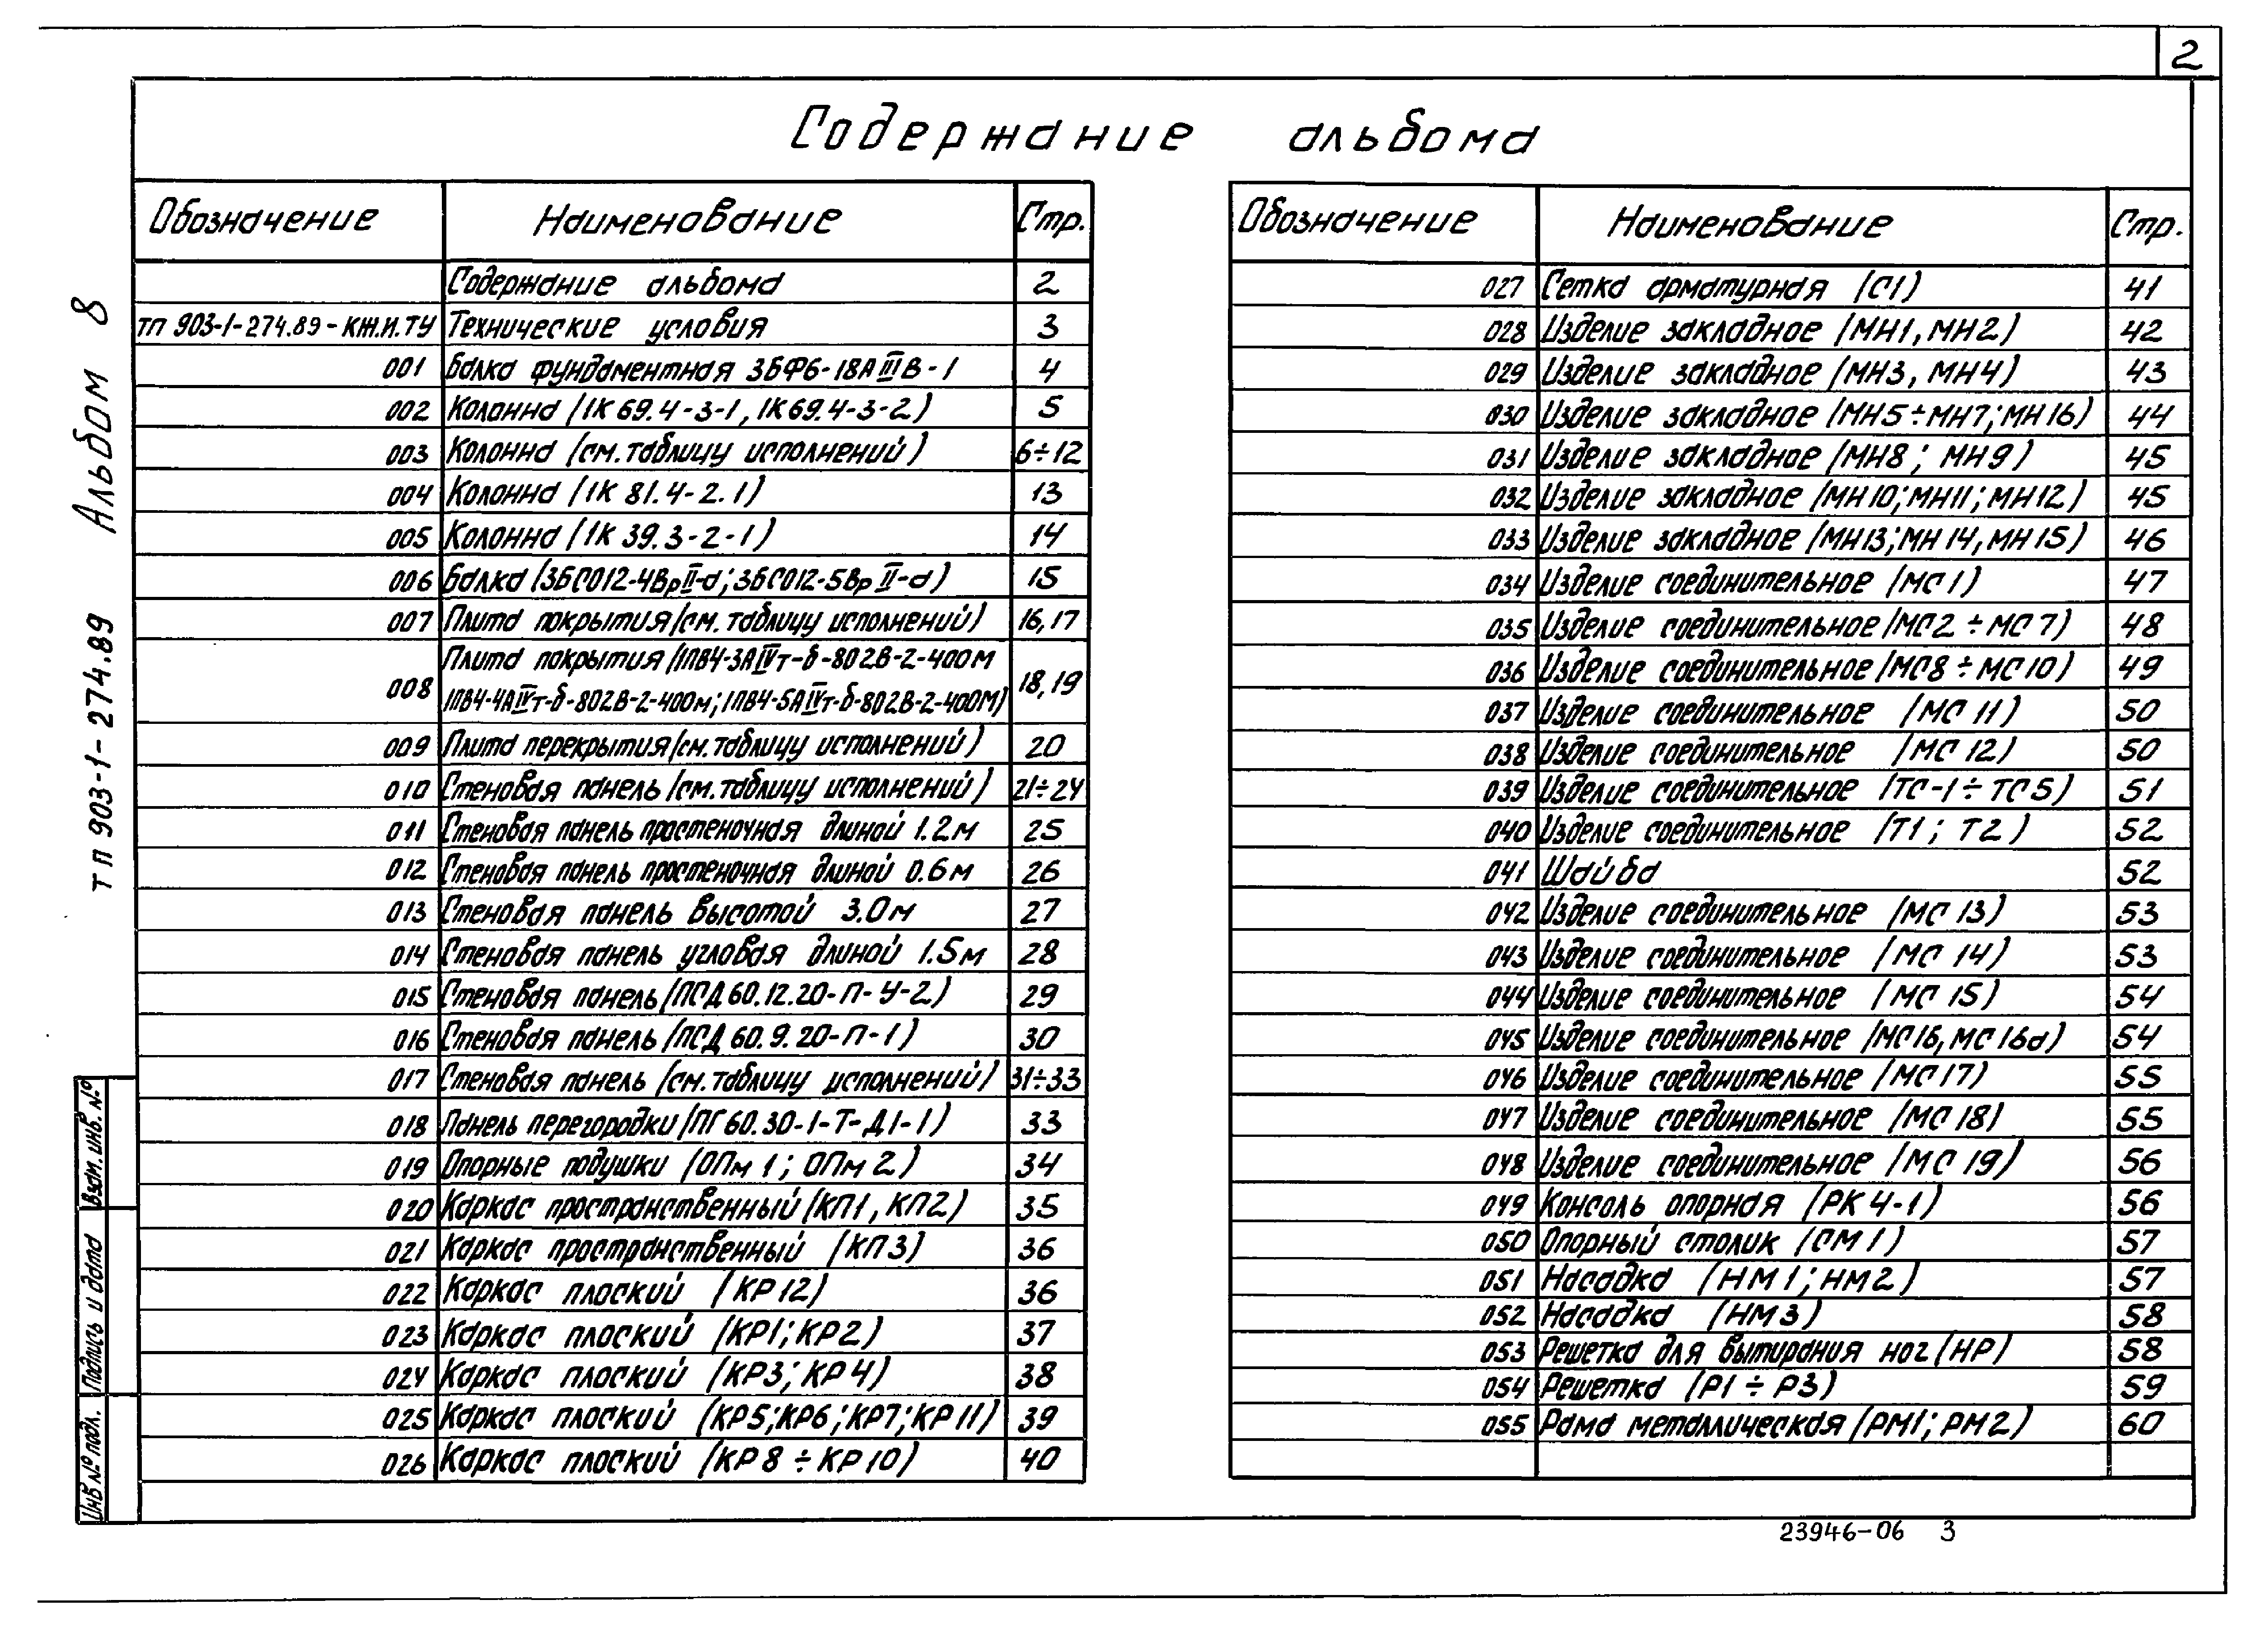 2
Содержание альбома
Обозначение Наименование Стр.
Содержание альбома 2
ТП 903-1-274.89-КЖ.И.ТУ Технические условия 3
001 Балка фундаментная 3БФ6-18АIIIВ-1 4
002 Колонна (1К69.4-3-1, 1К69.4-3-2) 5
003 Колонна (см. таблицу исполнений) 6÷12
004 Колонна (1К 81.4-2.1) 13
005 Колонна (1К 39.3-2-1) 14
006 Балка (3БСО12-4ВрII-а; 3БСО12-5ВрII-а) 15
007 Плита покрытия (см. таблицу исполнений) 16,17
008 Плита покрытия (1ПВ4-3АIVт-б-802В-2-400м 18,19
1ПВ4-4АIVт-б-802В-2-400м; 1ПВ4-5АIVт-б-802В-2-400М)
009 Плита перекрытия (см. таблицу исполнений) 20
010 Стеновая панель (см. таблицу исполнений) 21÷24
011 Стеновая панель простеночная длиной 1.2м 25
012 Стеновая панель простеночная длиной 0.6м 26
013 Стеновая панель высотой 3.0м 27
014 Стеновая панель угловая длиной 1.5м 28
015 Стеновая панель (ПСД 60.12.20-П-У-2) 29
016 Стеновая панель (ПСД 60.9.20-П-1) 30
017 Стеновая панель (см. таблицу исполнений) 31÷33
018 Панель перегородки (ПГ 60.30-1-Т-Д1-1) 33
019 Опорные подушки (ОПм 1; ОПм 2) 34
020 Каркас пространственный (КП1, КП2) 35
021 Каркас пространственный (КП3) 36
022 Каркас плоский (КР12) 36
023 Каркас плоский (КР1; КР2) 37
024 Каркас плоский (КР3; КР4) 38
025 Каркас плоский (КР5; КР6; КР7; КР11) 39
026 Каркас плоский (КР8 ÷ КР10) 40
Обозначение Наименование Стр.
027 Сетка арматурная (С1) 41
028 Изделие закладное (МН1, МН2) 42
029 Изделие закладное (МН3, МН4) 43
030 Изделие закладное (МН5÷МН7; МН16) 44
031 Изделие закладное (МН8; МН9) 45
032 Изделие закладное (МН10; МН11; МН12) 45
033 Изделие закладное (МН13; МН14, МН15) 46
034 Изделие соединительное (МС1) 47
035 Изделие соединительное (МС2 ÷ МС7) 48
036 Изделие соединительное (МС8 ÷ МС10) 49
037 Изделие соединительное (МС 11) 50
038 Изделие соединительное (МС 12) 50
039 Изделие соединительное (ТС-1 ÷ ТС5) 51
040 Изделие соединительное (Т1; Т2) 52
041 Шайба 52
042 Изделие соединительное (МС 13) 53
043 Изделие соединительное (МС 14) 53
044 Изделие соединительное (МС 15) 54
045 Изделие соединительное (МС16, МС16а) 54
046 Изделие соединительное (МС17) 55
047 Изделие соединительное (МС 18) 55
048 Изделие соединительное (МС 19) 56
049 Консоль опорная (РК4-1) 56
050 Опорный столик (СМ1) 57
051 Насадка (НМ1; НМ2) 57
052 Насадка (НМ3) 58
053 Решетка для вытирания ног (НР) 58
054 Решетка (Р1 ÷ Р3) 59
055 Рама металлическая (РМ1; РМ2) 60
ТП 903-1-274.89 Альбом 8
Взам. инв. №
Подпись и дата
Инв № подл.
23946-06 3